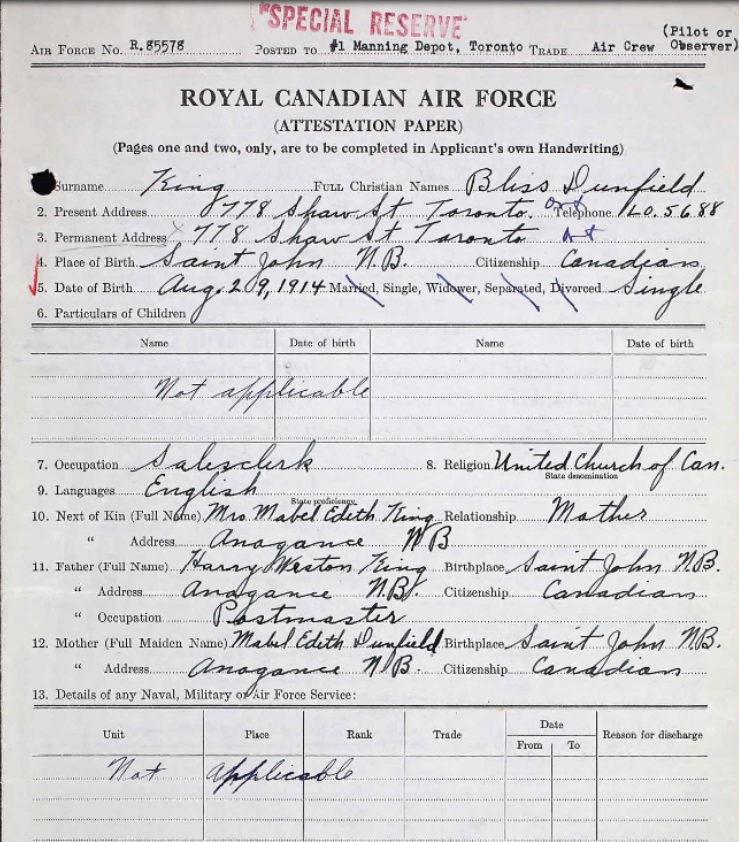 "SPECIAL RESERVE"
(Pilot or
AIR FORCE NO. R.85578 POSTED TO #1 Manning Depot, Toronto TRADE Air Crew Observer)
ROYAL CANADIAN AIR FORCE
(ATTESTATION PAPER)
(Pages one and two, only, are to be completed in Applicant's own Handwriting)
Surname King FULL Christian Names Bliss Dunfield
2. Present Address 778 Shaw St Toronto. Ont Telephone LO. 5688
3. Permanent Address X 778 Shaw St Toronto Ont
4. Place of Birth Saint John N.B. Citizenship Canadian
5. Date of Birth Aug. 29, 1914 Married, Single, Widower, Separated, Divorced Single
6. Particulars of Children
Name Date of birth Name Date of birth
Not applicable
7. Occupation Salesclerk 8. Religion United Church of Can.
State denomination
9. Languages English
State proficiency
10. Next of Kin (Full Name) Mrs Mabel Edith King Relationship Mother
" Address Anagance NB
11. Father (Full Name) Harry Weston King Birthplace Saint John N.B.
" Address Anagance N.B. Citizenship Canadian
" Occupation Postmaster
12. Mother (Full Maiden Name) Mabel Edith Dunfield Birthplace Saint John N.B.
" Address Anagance N.B. Citizenship Canadian
13. Details of any Naval, Military or Air Force Service:
Unit Place Rank Trade Date Reason for discharge
From To
Not applicable